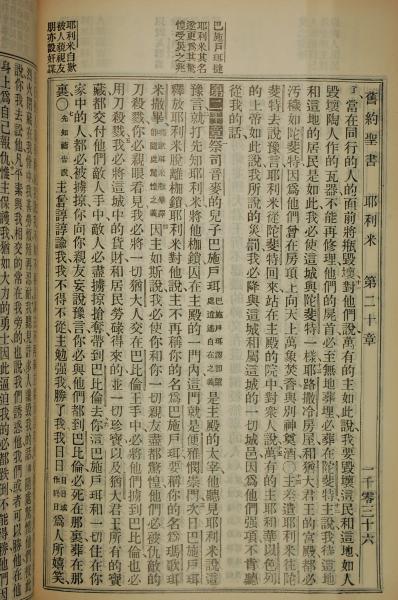 舊約聖書 耶利米 第二十章 一千零三十六
當在同行的人的面前將瓶毀壞對他們說萬有的主如此說我要毀壞這民和這地如人
毀壞陶人作的瓦器不能再修理他們的屍首必至無地葬埋必葬在陀斐特主說我待這地
和這地的居民是如此我必使這城與陀斐特一樣耶路撒冷房屋和猶大君王的宮殿都必
汚穢如陀斐特因爲他們曾在房頂上向天上萬象焚香與別神奠酒○主差遣耶利米往陀
斐特去說豫言耶利米從陀斐特回來站在主殿的院中對衆人說萬有的主耶和華以色列
的上帝如此說我所說的災罰我必降與這城和屬這城的一切城邑因爲他們强項不肯聽
從我的話
巴施戶珥撻
耶利米其名
遂更爲其驚
惶受災之兆
第二十章 祭司音麥的兒子巴施戶珥 巴施戶珥譯卽隨處逍遙自在之義 是主殿的太宰他聽見耶利米說這
豫言就打先知耶利米將他枷鎖囚在主殿的一門內這門就是便雅憫崇門次日巴施戶珥
釋放耶利米脫離枷鎖耶利米對他說主不再稱你的名爲巴施戶珥要稱你的名爲瑪歌珥
米撒畢 瑪歌珥米撒畢譯卽隨處驚惶之義 因主如斯說我必使你和你一切親友盡都驚惶他們必被仇敵的
刀殺戮你必親眼看見我必將一切猶大人交在巴比倫王手中必將他們擄到巴比倫也必
用刀殺戮我必將這城中的貨財和居民勞碌得來的並一切珍寶以及猶大君王所有的寶
藏都交付他們敵人手中敵人必盡擄掠搶奪帶到巴比倫去你這巴施戶珥和一切住在你
家中的人都必被擄掠你向你親友妄說豫言你必與他們都到巴比倫必死在那裏葬在那
耶利米自歎
被人棱視友
朋亦設奸謀
裏○先知禱告說主啊諄諄諭我我不得不從主勉强我勝了我我日日 日日或作終日 爲人所嬉笑
說你我去說他凡平素與我相交的常在我旁的也說我們誘惑他我們或者可以勝他在他
身上爲自己報仇惟主保護我猶如大力的勇士因此逼迫我的必都跌倒不能得勝他們因